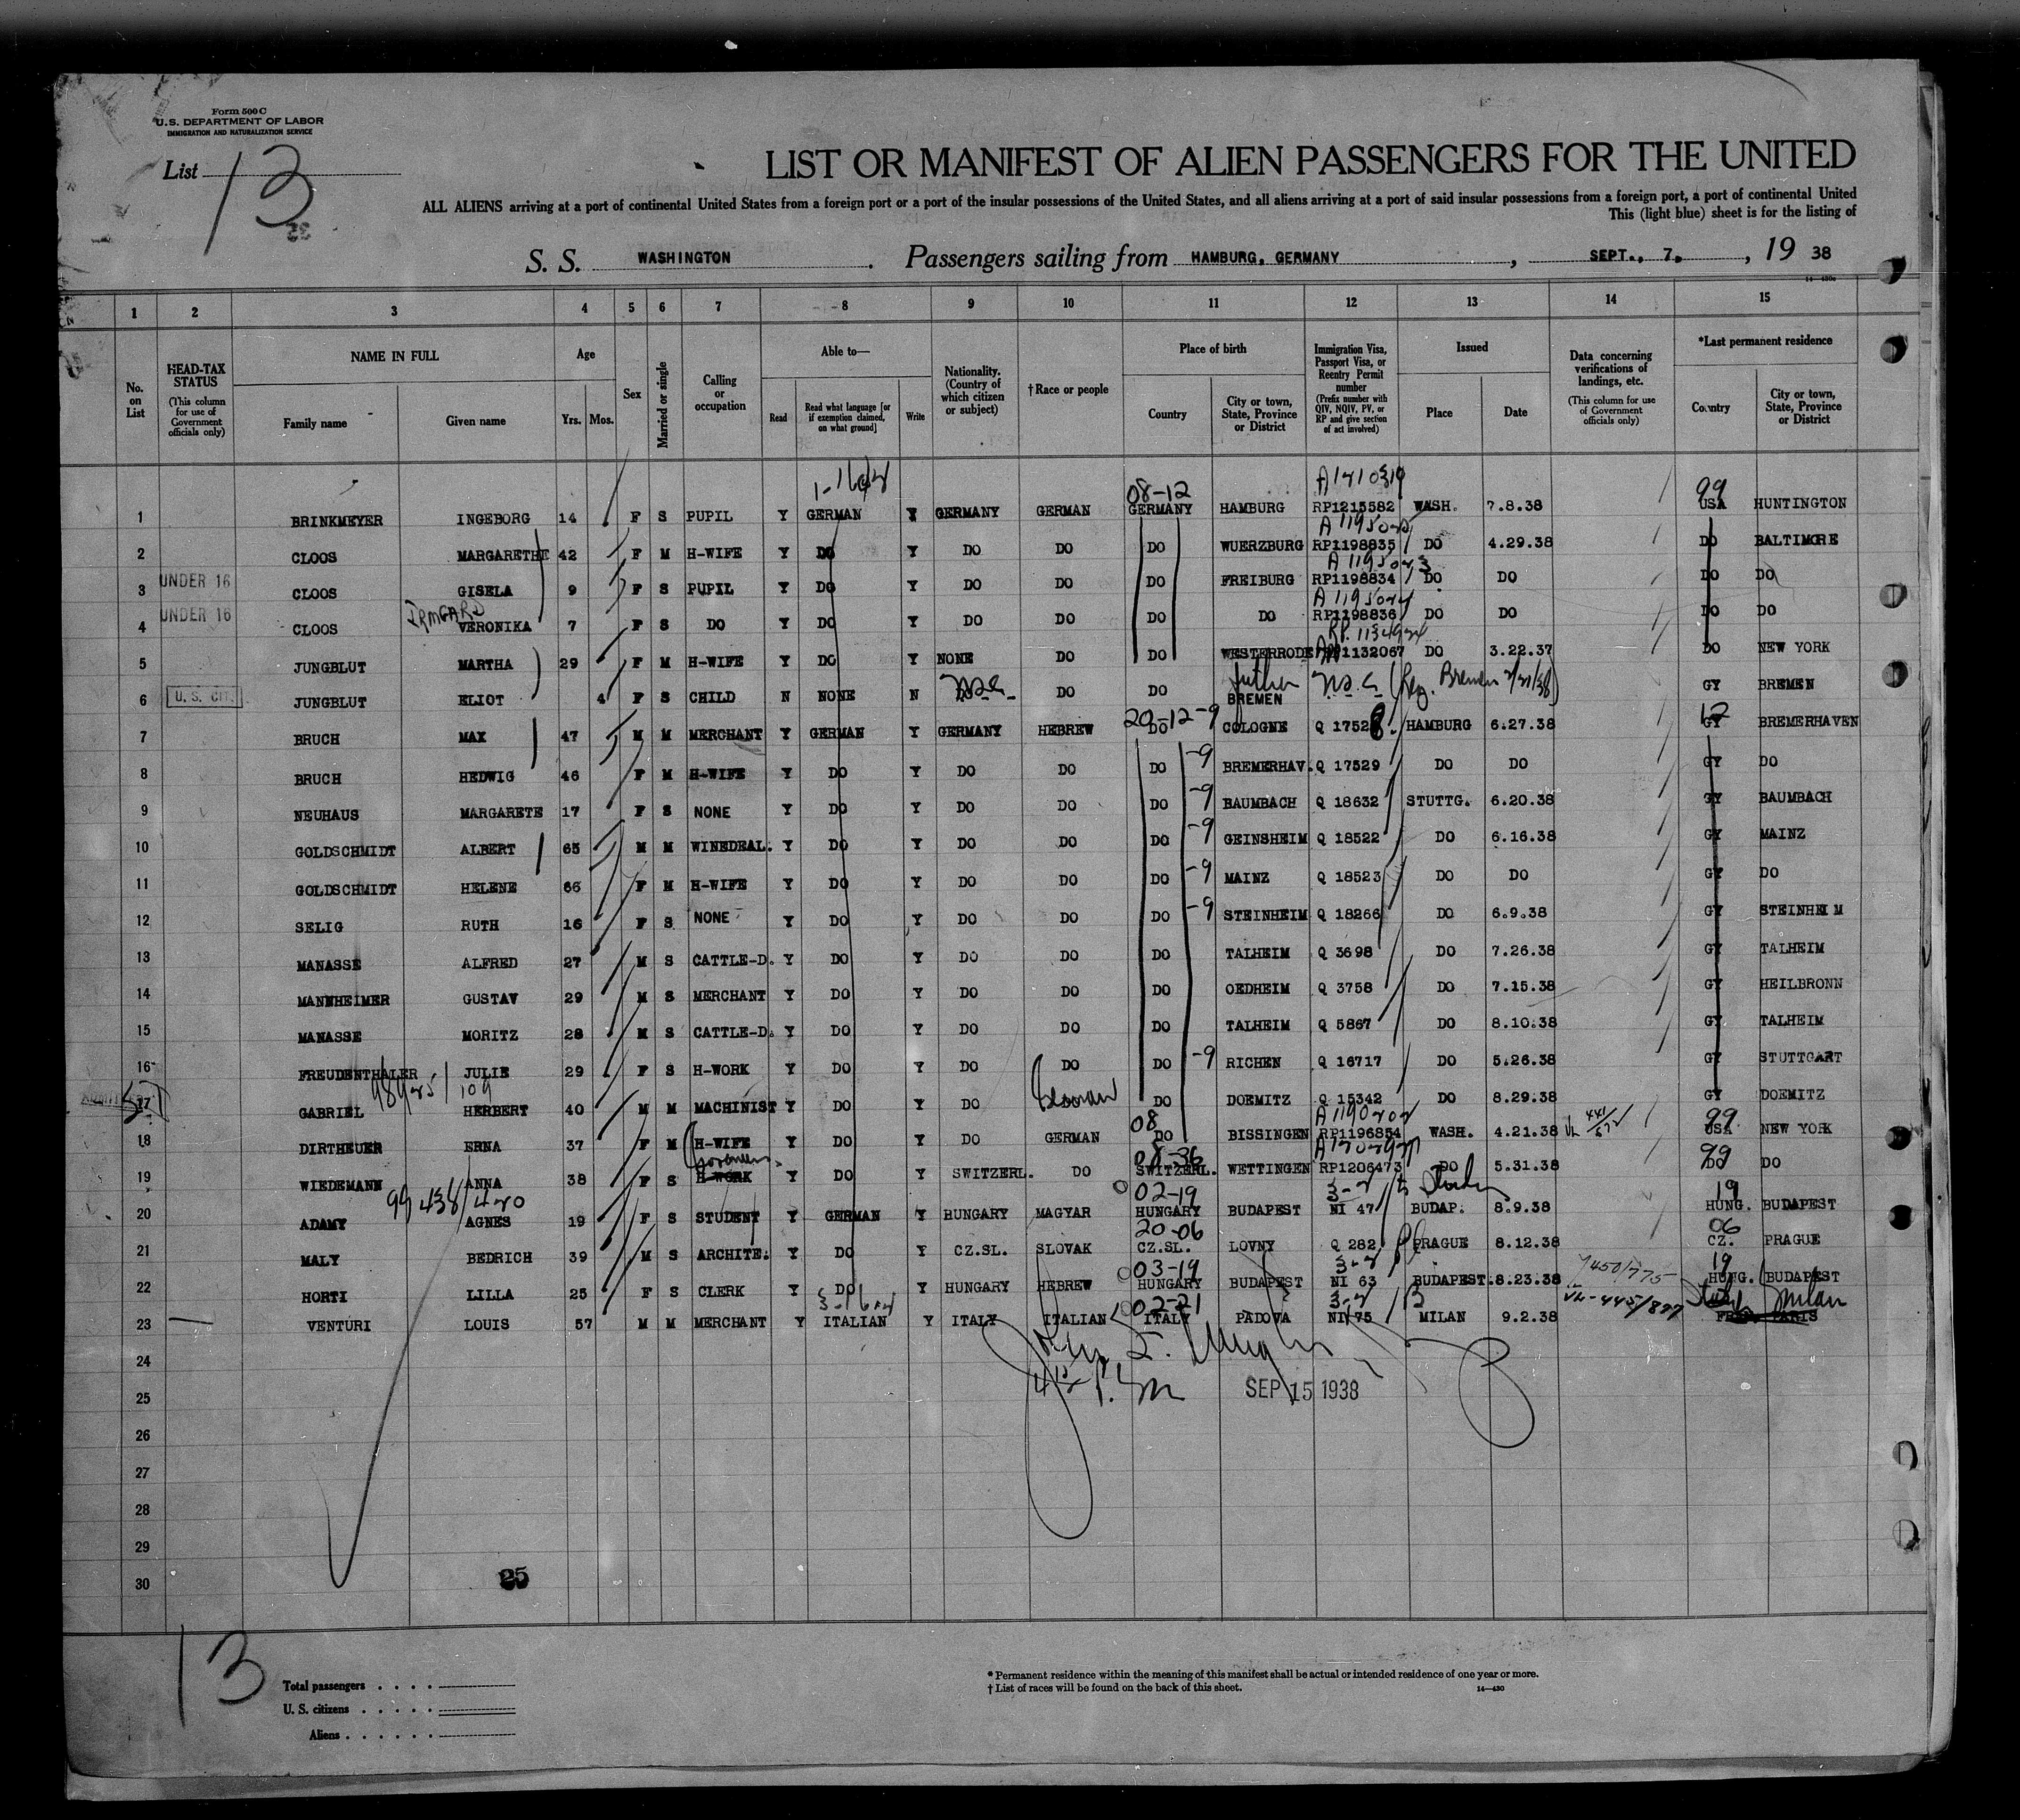 Form 500 C
U.S. DEPARTMENT OF LABOR
IMMIGRATION AND NATURALIZATION SERVICE
List 13
LIST OR MANIFEST OF ALIEN PASSENGERS FOR THE UNITED
ALL ALIENS arriving at a port of continental United States from a foreign port or a port of the insular possessions of the United States, and all aliens arriving at a port of said insular possessions from a foreign port, a port of continental United
This (light blue) sheet is for the listing of
S. S. WASHINGTON . Passengers sailing from HAMBURG, GERMANY , SEPT., 7. , 19 38
1 2 3 4 5 6 7 8 9 10 11 12 13 14 15
No. on List
HEAD-TAX STATUS (This column for use of Government officials only)
NAME IN FULL
Family name Given name
Age
Yrs. Mos.
Sex
Married or single
Calling or occupation
Able to—
Read Read what language [or if exemption claimed, on what ground] Write
Nationality. (Country of which citizen or subject)
†Race or people
Place of birth
Country City or town, State, Province or District
Immigration Visa, Passport Visa, or Reentry Permit number (Prefix number with QIV, NQIV, PV, or RP and give section of act involved)
Issued
Place Date
Data concerning verifications of landings, etc. (This column for use of Government officials only)
*Last permanent residence
Country City or town, State, Province or District
08-12 99
1 BRINKMEYER INGEBORG 14 F S PUPIL Y GERMAN Y GERMANY GERMAN GERMANY HAMBURG RP1215582 WASH. 7.8.38 USA HUNTINGTON
2 CLOOS MARGARETHE 42 F M H-WIFE Y DO Y DO DO DO WUERZBURG RP1198835 DO 4.29.38 DO BALTIMORE
3 UNDER 16 CLOOS GISELA 9 F S PUPIL Y DO Y DO DO DO FREIBURG RP1198834 DO DO DO DO
4 UNDER 16 CLOOS IRMGARD VERONIKA 7 F S DO Y DO Y DO DO DO DO RP1198836 DO DO DO DO
5 JUNGBLUT MARTHA 29 F M H-WIFE Y DO Y NONE DO DO WESTERRODE 1132067 DO 3.22.37 DO NEW YORK
6 U. S. CIT. JUNGBLUT ELIOT 4 F S CHILD N NONE N DO DO BREMEN Bremen GY BREMEN
20-12-9 12
7 BRUCH MAX 47 M M MERCHANT Y GERMAN Y GERMANY HEBREW DO COLOGNE Q 17528 HAMBURG 6.27.38 GY BREMERHAVEN
8 BRUCH HEDWIG 46 F M H-WIFE Y DO Y DO DO DO -9 BREMERHAV. Q 17529 DO DO GY DO
9 NEUHAUS MARGARETE 17 F S NONE Y DO Y DO DO DO -9 BAUMBACH Q 18632 STUTTG. 6.20.38 GY BAUMBACH
10 GOLDSCHMIDT ALBERT 65 M M WINEDEAL. Y DO Y DO DO DO -9 GEINSHEIM Q 18522 DO 6.16.38 GY MAINZ
11 GOLDSCHMIDT HELENE 66 F M H-WIFE Y DO Y DO DO DO -9 MAINZ Q 18523 DO DO GY DO
12 SELIG RUTH 16 F S NONE Y DO Y DO DO DO -9 STEINHEIM Q 18266 DO 6.9.38 GY STEINHEIM
13 MANASSE ALFRED 27 M S CATTLE-D. Y DO Y DO DO DO TALHEIM Q 3698 DO 7.26.38 GY TALHEIM
14 MANNHEIMER GUSTAV 29 M S MERCHANT Y DO Y DO DO DO OEDHEIM Q 3758 DO 7.15.38 GY HEILBRONN
15 MANASSE MORITZ 28 M S CATTLE-D. Y DO Y DO DO DO TALHEIM Q 5867 DO 8.10.38 GY TALHEIM
16 FREUDENTHALER JULIE 29 F S H-WORK Y DO Y DO DO DO -9 RICHEN Q 16717 DO 5.26.38 GY STUTTGART
17 GABRIEL HERBERT 40 M M MACHINIST Y DO Y DO German DO DOEMITZ Q 15342 DO 8.29.38 GY DOEMITZ
08 99
18 DIRTHEUER ERNA 37 F M H-WIFE Y DO Y DO GERMAN DO BISSINGEN RP1196854 WASH. 4.21.38 USA NEW YORK
08-36 99
19 WIEDEMANN ANNA 38 F S H-WORK Y DO Y SWITZERL. DO SWITZERL. WETTINGEN RP1206473 DO 5.31.38 DO DO
99 438/420 02-19 3-2 19
20 ADAMY AGNES 19 F S STUDENT Y GERMAN Y HUNGARY MAGYAR HUNGARY BUDAPEST NI 47 BUDAP. 8.9.38 HUNG. BUDAPEST
20-06 06
21 MALY BEDRICH 39 M S ARCHITE. Y DO Y CZ.SL. SLOVAK CZ.SL. LOVNY Q 282 PRAGUE 8.12.38 CZ. PRAGUE
03-19 3-2 19
22 HORTI LILLA 25 F S CLERK Y DO Y HUNGARY HEBREW HUNGARY BUDAPEST NI 63 BUDAPEST. 8.23.38 HUNG. BUDAPEST
02-21 3-2 Milan
23 VENTURI LOUIS 57 M M MERCHANT Y ITALIAN Y ITALY ITALIAN ITALY PADOVA NI 75 MILAN 9.2.38 PARIS
24
25 SEP 15 1938
26
27
28
29
30 25
13
Total passengers . . . .
U. S. citizens . . . . .
Aliens . . . . .
* Permanent residence within the meaning of this manifest shall be actual or intended residence of one year or more.
† List of races will be found on the back of this sheet. 14—430